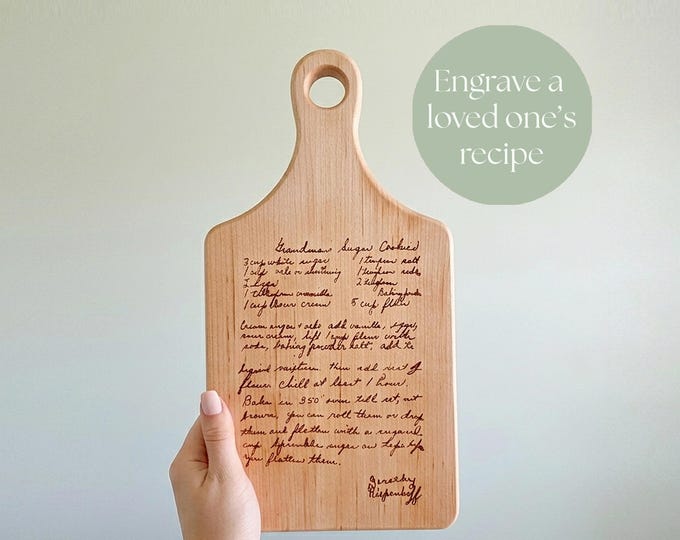 Engrave a
loved one's
recipe
Grandmas Sugar Cookies
3 cup white sugar 1 teaspoon salt
1 cup or shortening 1 teaspoon soda
2 eggs 2 teaspoon
1 vanilla Baking powder
1 cup sour cream 5 cup flour
Cream sugar + add vanilla, eggs,
sour cream, sift 1 cup flour with
soda, baking powder salt. add to
liquid mixture. then add rest of
flour chill at least 1 hour.
Bake in 350° oven till set, not
brown, you can roll them or drop
them and flatten with a sugared
cup Sprinkle sugar on top
you flatten them.
Dorothy